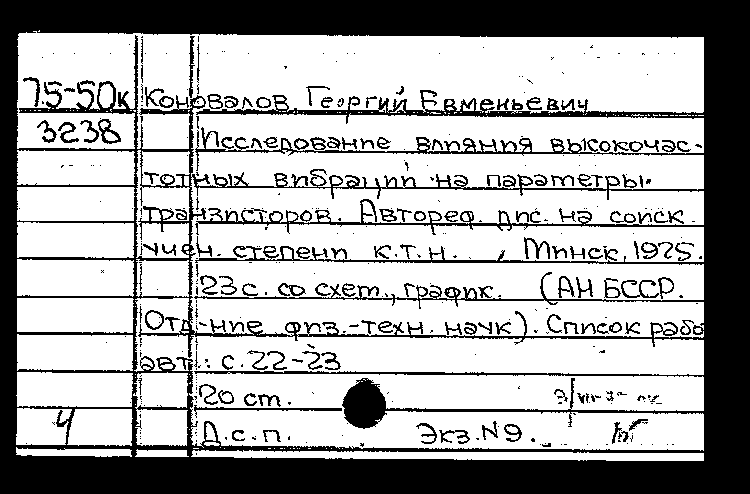 75-50к Коновалов, Георгий Евменьевич
3238 Исследование влияния высокочас-
тотных вибраций на параметры
транзисторов. Автореф. дис. на соиск.
учен. степени к.т.н. , Минск, 1975.
23 с. со схем., график. (АН БССР.
Отд-ние физ.-техн. наук). Список рабо
авт.: с. 22-23
20 ст.
Ч Д.с.п. Экз. N9.